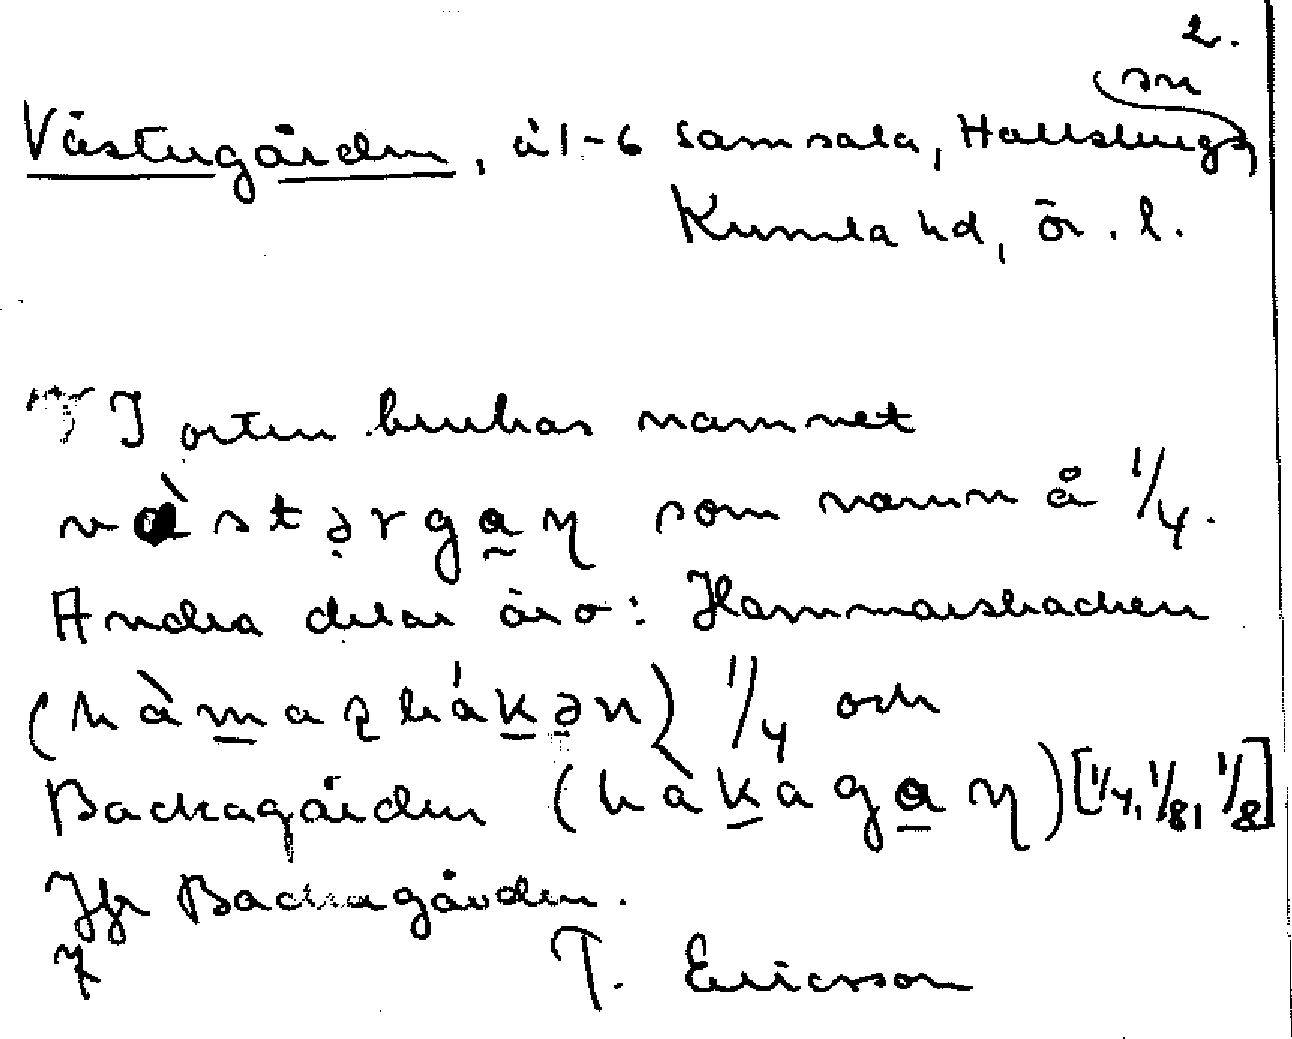 2.
Västergården, å 1-6 Samsala, Hallsbergs sn
Kumla hd, Ör. l.
I orten brukas namnet
västərgaɳ som namn å 1/4.
Andra delar äro: Hammarsbacken
(hàmaʂbákən) 1/4 och
Backagården (bàkagaɳ) [1/4, 1/8, 1/8]
Jfr Backagården.
T. Ericsson